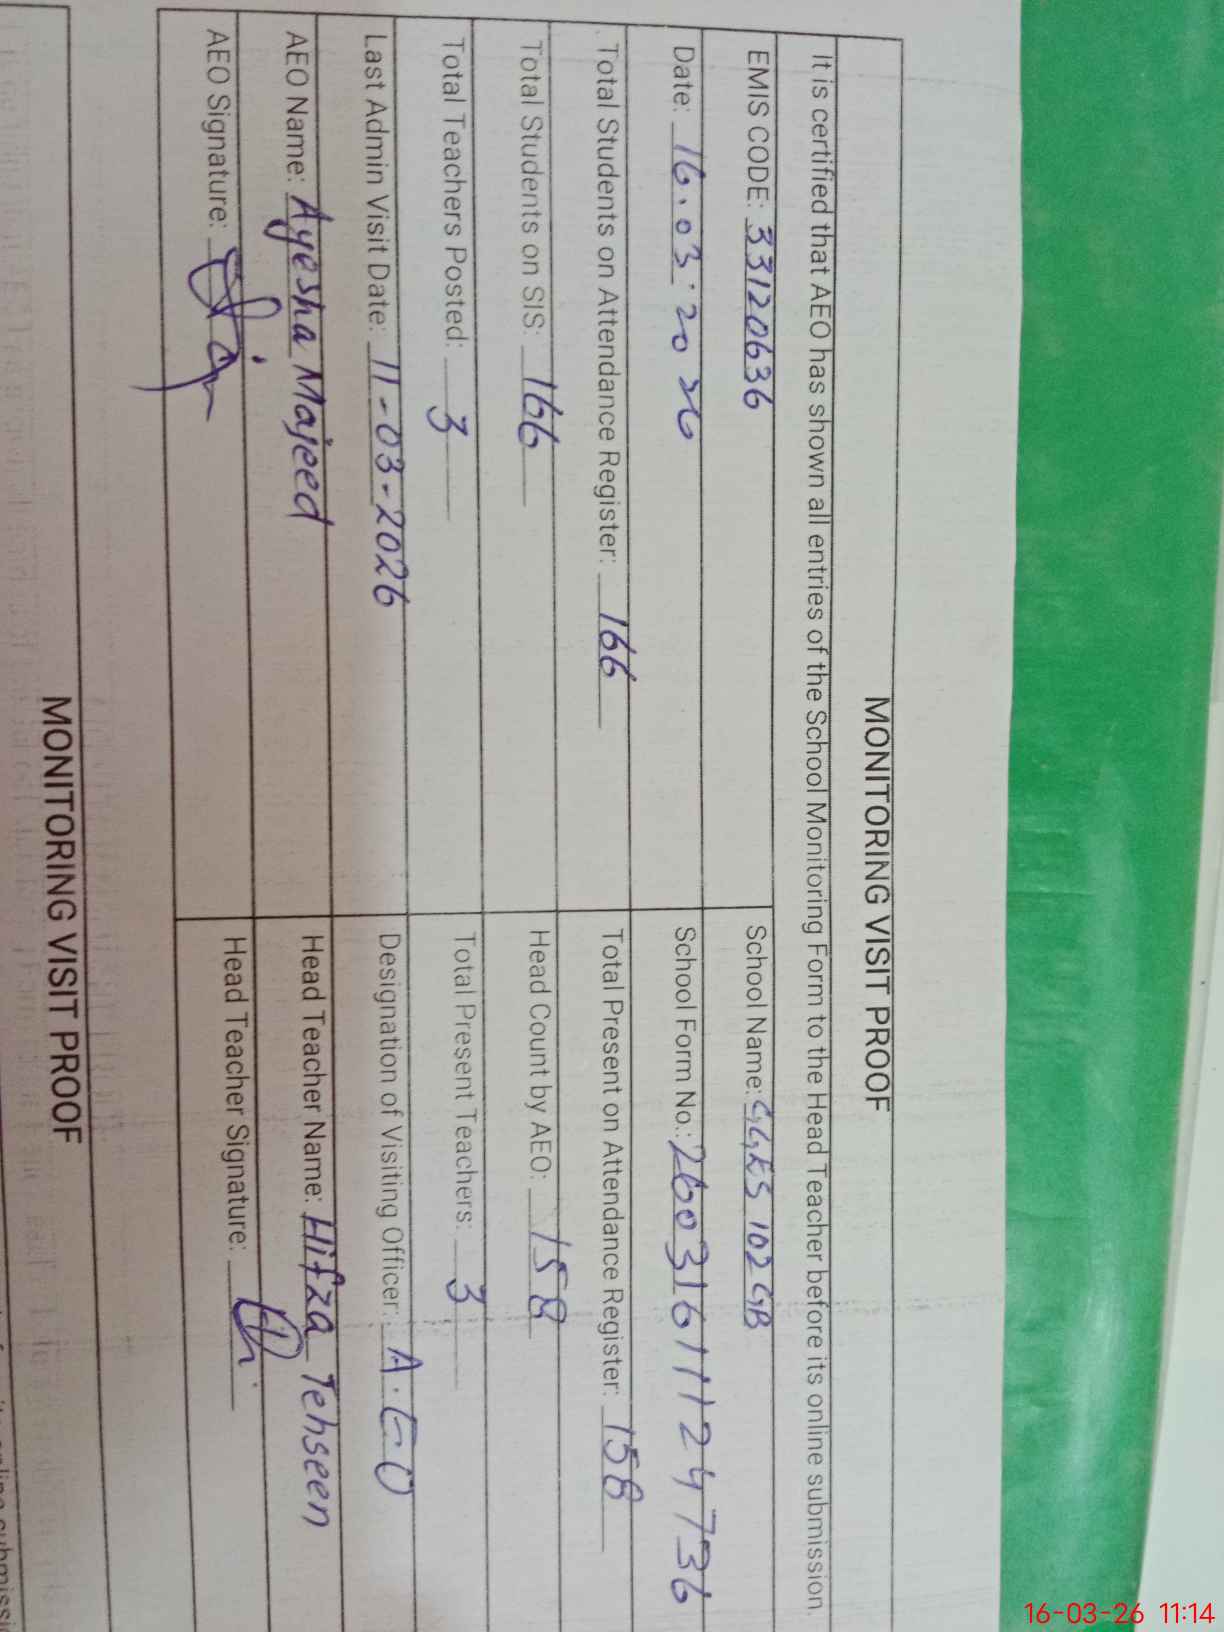 MONITORING VISIT PROOF
It is certified that AEO has shown all entries of the School Monitoring Form to the Head Teacher before its online submission.
EMIS CODE: 33120636
School Name: GGES 102 GB
Date: 16.03.2026
School Form No.: 26031611124736
Total Students on Attendance Register: 166
Total Present on Attendance Register: 158
Total Students on SIS: 166
Head Count by AEO: 158
Total Teachers Posted: 3
Total Present Teachers: 3
Last Admin Visit Date: 11-03-2026
Designation of Visiting Officer: A.E.O
AEO Name: Ayesha Majeed
Head Teacher Name: Hifza Tehseen
AEO Signature:
Head Teacher Signature:
MONITORING VISIT PROOF
16-03-26 11:14